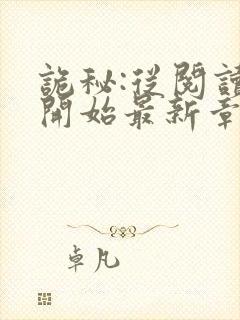 詭秘:從閱讀
開始最新章
卓凡